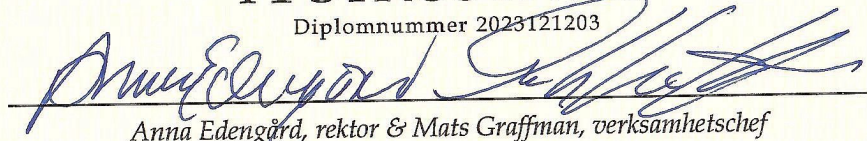 Diplomnummer 2023121203
Anna Edengård
Anna Edengård, rektor & Mats Graffman, verksamhetschef